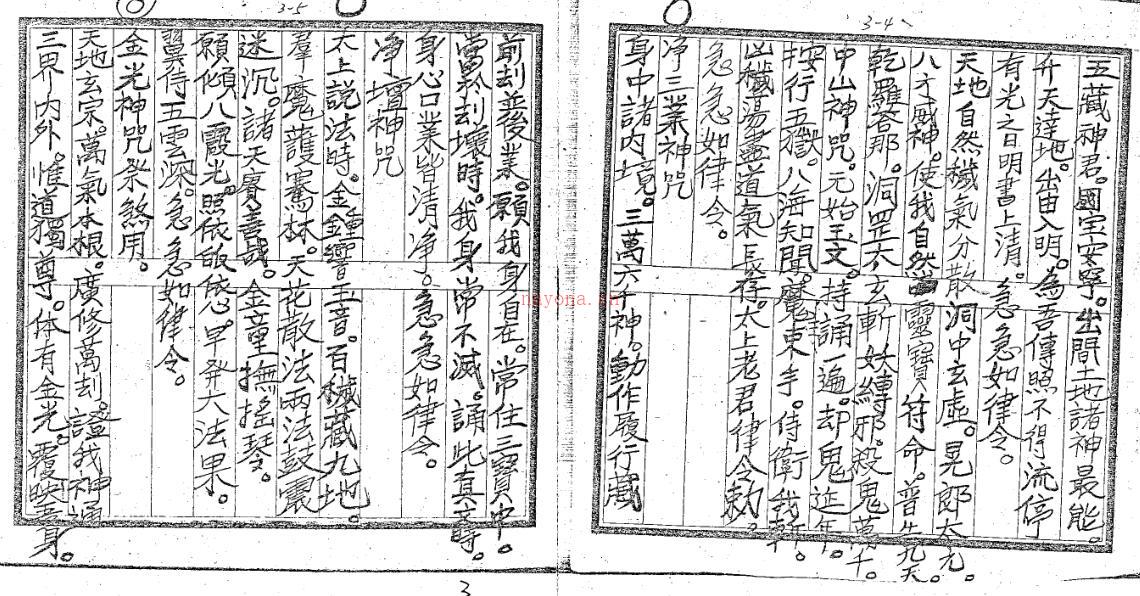 3-4
五藏神君。國宝安寧。出間土地諸神最能。
升天達地。出由入明。為吾傳照不得流停
有光之日明書上清。急急如律令。
天地自然穢氣分散洞中玄虛。晃郎太元。
八方威神。使我自然靈寶符命。普告九天。
乾羅荅那。洞罡太玄斬妖縛邪。殺鬼萬千。
中山神咒。元始玉文。持誦一遍。却鬼延年。
按行五獄。八海知聞。魔王束手。侍衛我軒。
凶穢湯盡道氣長存。太上老君律令勅。
急急如律令。
净三業神咒
身中諸内境。三萬六千神。動作履行藏
3-5
前刦並後業。願我身自在。常住三寶中。
當於刦壞時。我身常不滅。誦此真文時。
身心口業皆清净。急急如律令。
净壇神咒
太上説法時。金鐘響玉音。百穢藏九地。
羣魔護騫林。天花散法雨法鼓震
迷沉。諸天賡善哉。金童撫搖琴。
願傾八霞光。照依皈依心。早發大法果。
翼侍五雲深。急急如律令。
金光神咒祭煞用。
天地玄宗。萬氣本根。廣修萬刦。證我神通
三界内外。惟道獨尊。体有金光。覆映吾身。
3
nayona.sh